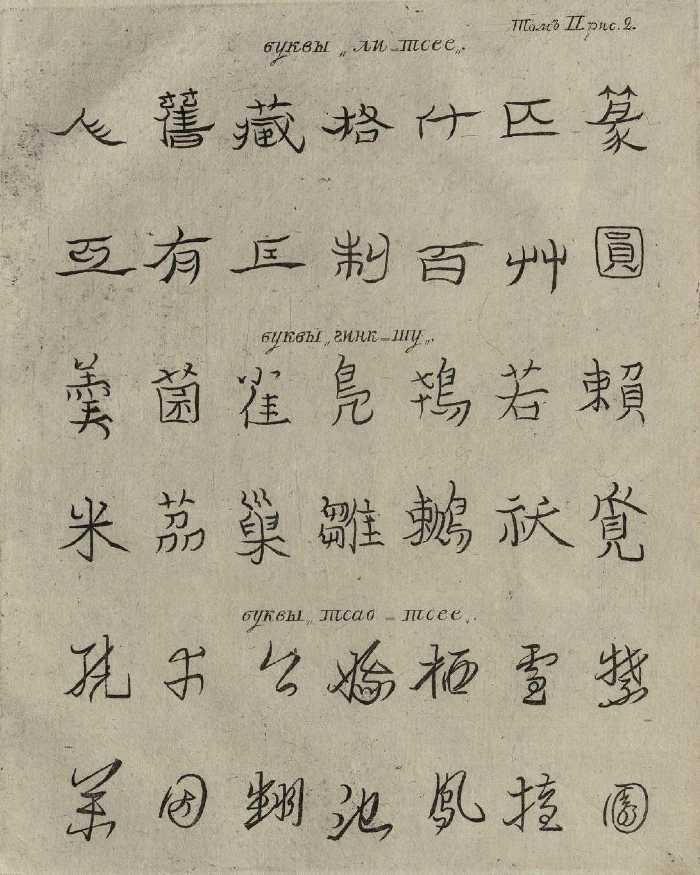 Томъ II рис. 2.
буквы „ли-тсее„.
人 舊 藏 格 什 匹 篆
亞 有 制 百 艸 圓
буквы „гинк-шу„.
羹 菌 雀 鳧 鵠 若 賴
米 荔 巢 雛 鶇 袄 覓
буквы „тсао-тсее„.
公 栖 雪
因 翻 池 鳳 園